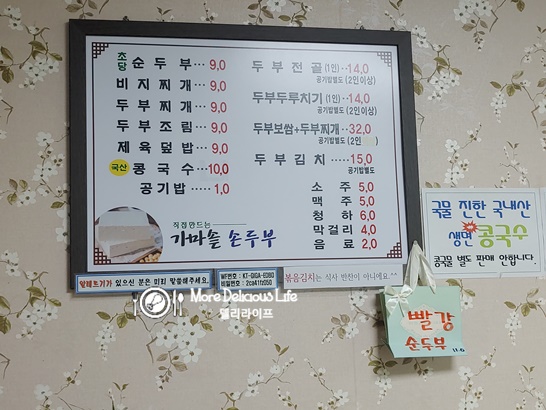 초당 순두부 ··· 9,0
비지찌개 ···· 9,0
두부찌개 ···· 9,0
두부조림 ···· 9,0
제육덮밥 ···· 9,0
국산 콩국수 ··· 10,0
공기밥 ···· 1,0
두부전골 (1인) ·· 14,0
공기밥별도 (2인이상)
두부두루치기 (1인) ·· 14,0
공기밥별도 (2인이상)
두부보쌈+두부찌개 ·· 32,0
공기밥별도 (2인
두부김치 ····· 15,0
공기밥별도
소주 5,0
맥주 5,0
청하 6,0
막걸리 4,0
음료 2,0
직접만드는
가마솥 손두부
알레르기가 있으신 분은 미리 말씀해주세요.
WF번호 : KT-GIGA-E0B0
비밀번호 :
볶음김치는 식사 반찬이 아니에요.^^
국물 진한 국내산
생면 콩국수
콩국물 별도 판매 안합니다.
빨강
순두부
11.0
More Delicious Life
델리라이프